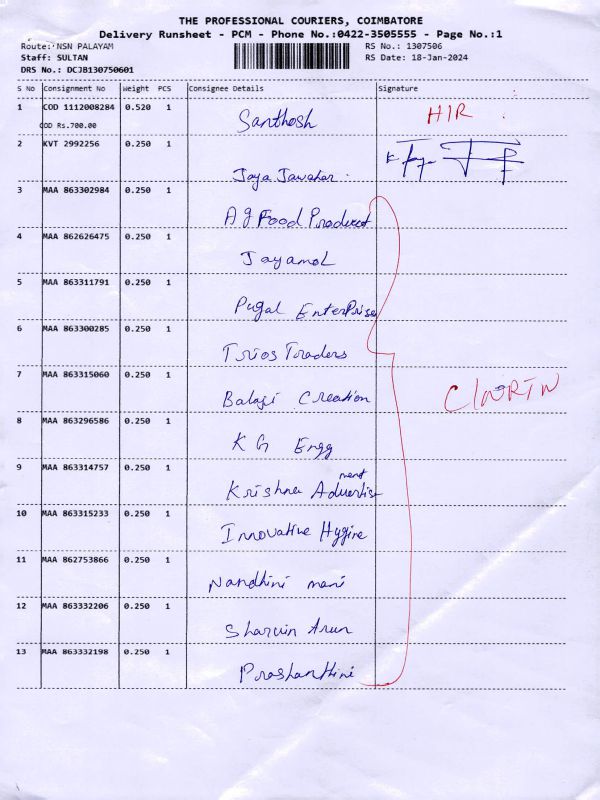 THE PROFESSIONAL COURIERS, COIMBATORE
Delivery Runsheet - PCM - Phone No.:0422-3505555 - Page No.:1
Route: NSN PALAYAM RS No.: 1307506
Staff: SULTAN RS Date: 18-Jan-2024
DRS No.: DCJB130750601
S No Consignment No Weight PCS Consignee Details Signature
1 COD 1112008284 0.520 1 Santhosh HIR
COD Rs.700.00
2 KVT 2992256 0.250 1 Jaya Jawahar.
3 MAA 863302984 0.250 1 A g Food Product
4 MAA 862626475 0.250 1 Jayamol
5 MAA 863311791 0.250 1 Pugal EnterPrise
6 MAA 863300285 0.250 1 Trios Traders
7 MAA 863315060 0.250 1 Balaji Creation
8 MAA 863296586 0.250 1 K G Engg
9 MAA 863314757 0.250 1 Krishna Advertisment
10 MAA 863315233 0.250 1 Innovative Hygine
11 MAA 862753866 0.250 1 Nandhini mani
12 MAA 863332206 0.250 1 Sharvin Arun
13 MAA 863332198 0.250 1 Prashanthini